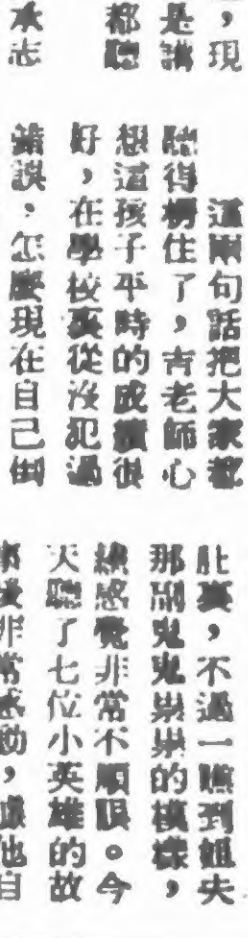 ，現
是講
都聽
志
這兩句話把大家都
聽得楞住了，吉老師心
想這孩子平時的成績很
好，在學校裏從沒犯過
錯誤，怎麼現在自己倒
肚裏，不過一瞧到姐夫
那副鬼鬼祟祟的模樣，
總感覺非常不順眼。今
天聽了七位小英雄的故
事後非常感動，他自